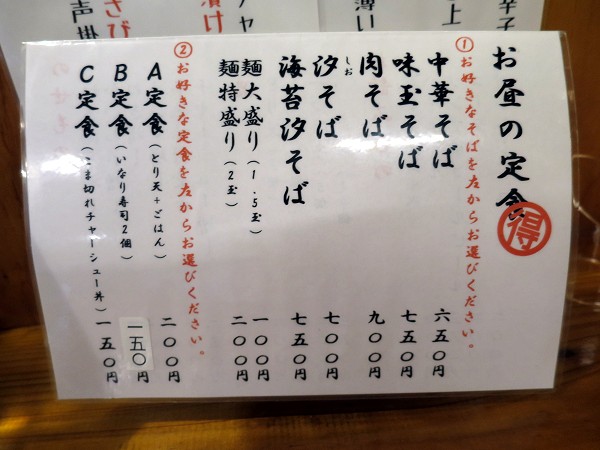 お昼の定食
得
①お好きなそばを左からお選びください。
中華そば 六五〇円
味玉そば 七五〇円
肉そば 九〇〇円
汐そば 七〇〇円
しお
海苔汐そば 七五〇円
麺大盛り(1.5玉) 一〇〇円
麺特盛り(2玉) 二〇〇円
②お好きな定食を左からお選びください。
A定食(とり天+ごはん) 二〇〇円
B定食(いなり寿司2個) 一五〇円
C定食(こま切れチャーシュー丼) 一五〇円